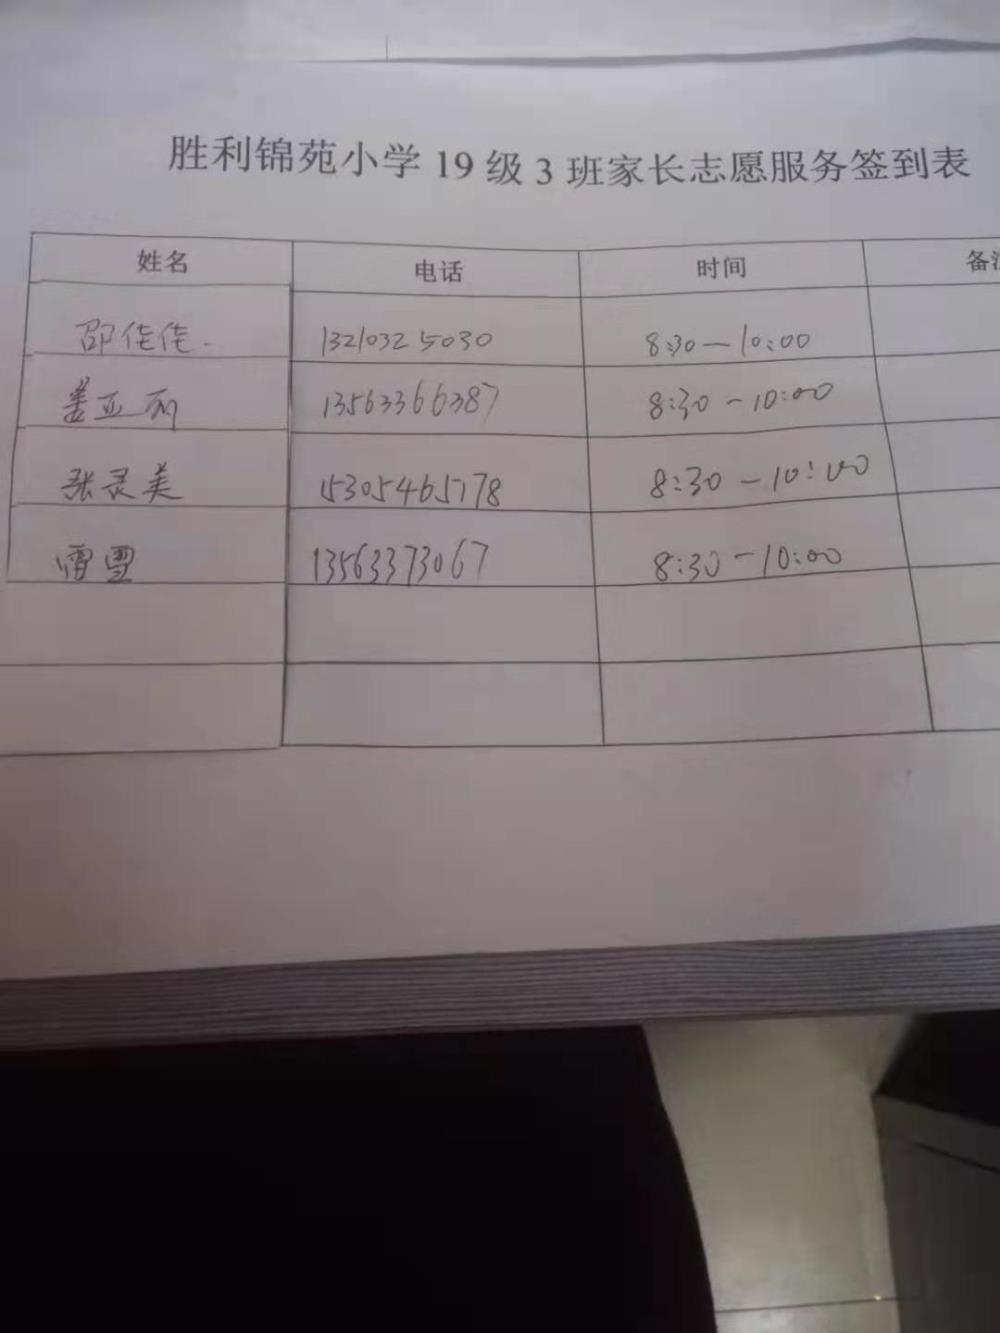 胜利锦苑小学 19 级 3 班家长志愿服务签到表
姓名 电话 时间 备注
邵佳佳. 13210325030 8:30—10:00
姜亚丽 13563366387 8:30—10:00
张灵美 15305465178 8:30—10:00
雷雪 13563373067 8:30—10:00